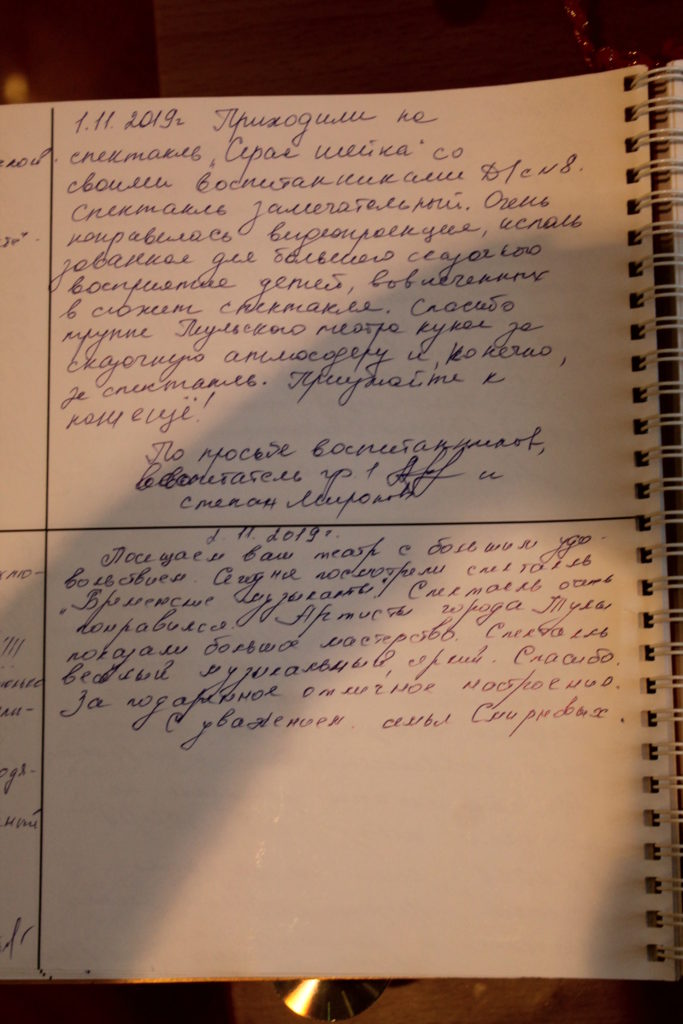 1.11.2019г Приходили на
спектакль „Серая шейка" со
своими воспитанниками Д/с №8.
Спектакль замечательный. Очень
понравилась видеопроекция, исполь
зованная для большего сказочного
восприятие детей, вовлеченных
в сюжет спектакля. Спасибо
труппе Тульского театра кукол за
сказочную атмосферу и, конечно,
за спектакль. Приезжайте к
нам ещё!
По просьбе воспитанников,
воспитатель гр. 1 и
Степан Миронов
2. 11. 2019г.
Посещаем ваш театр с большим удо-
вольствием. Сегодня посмотрели спектакль
„Бременские музыканты". Спектакль очень
понравился. Артисты города Тулы
показали большое мастерство. Спектакль
весёлый музыкальный, яркий. Спасибо.
За подаренное отличное настроение.
С уважением семья Смирновых.